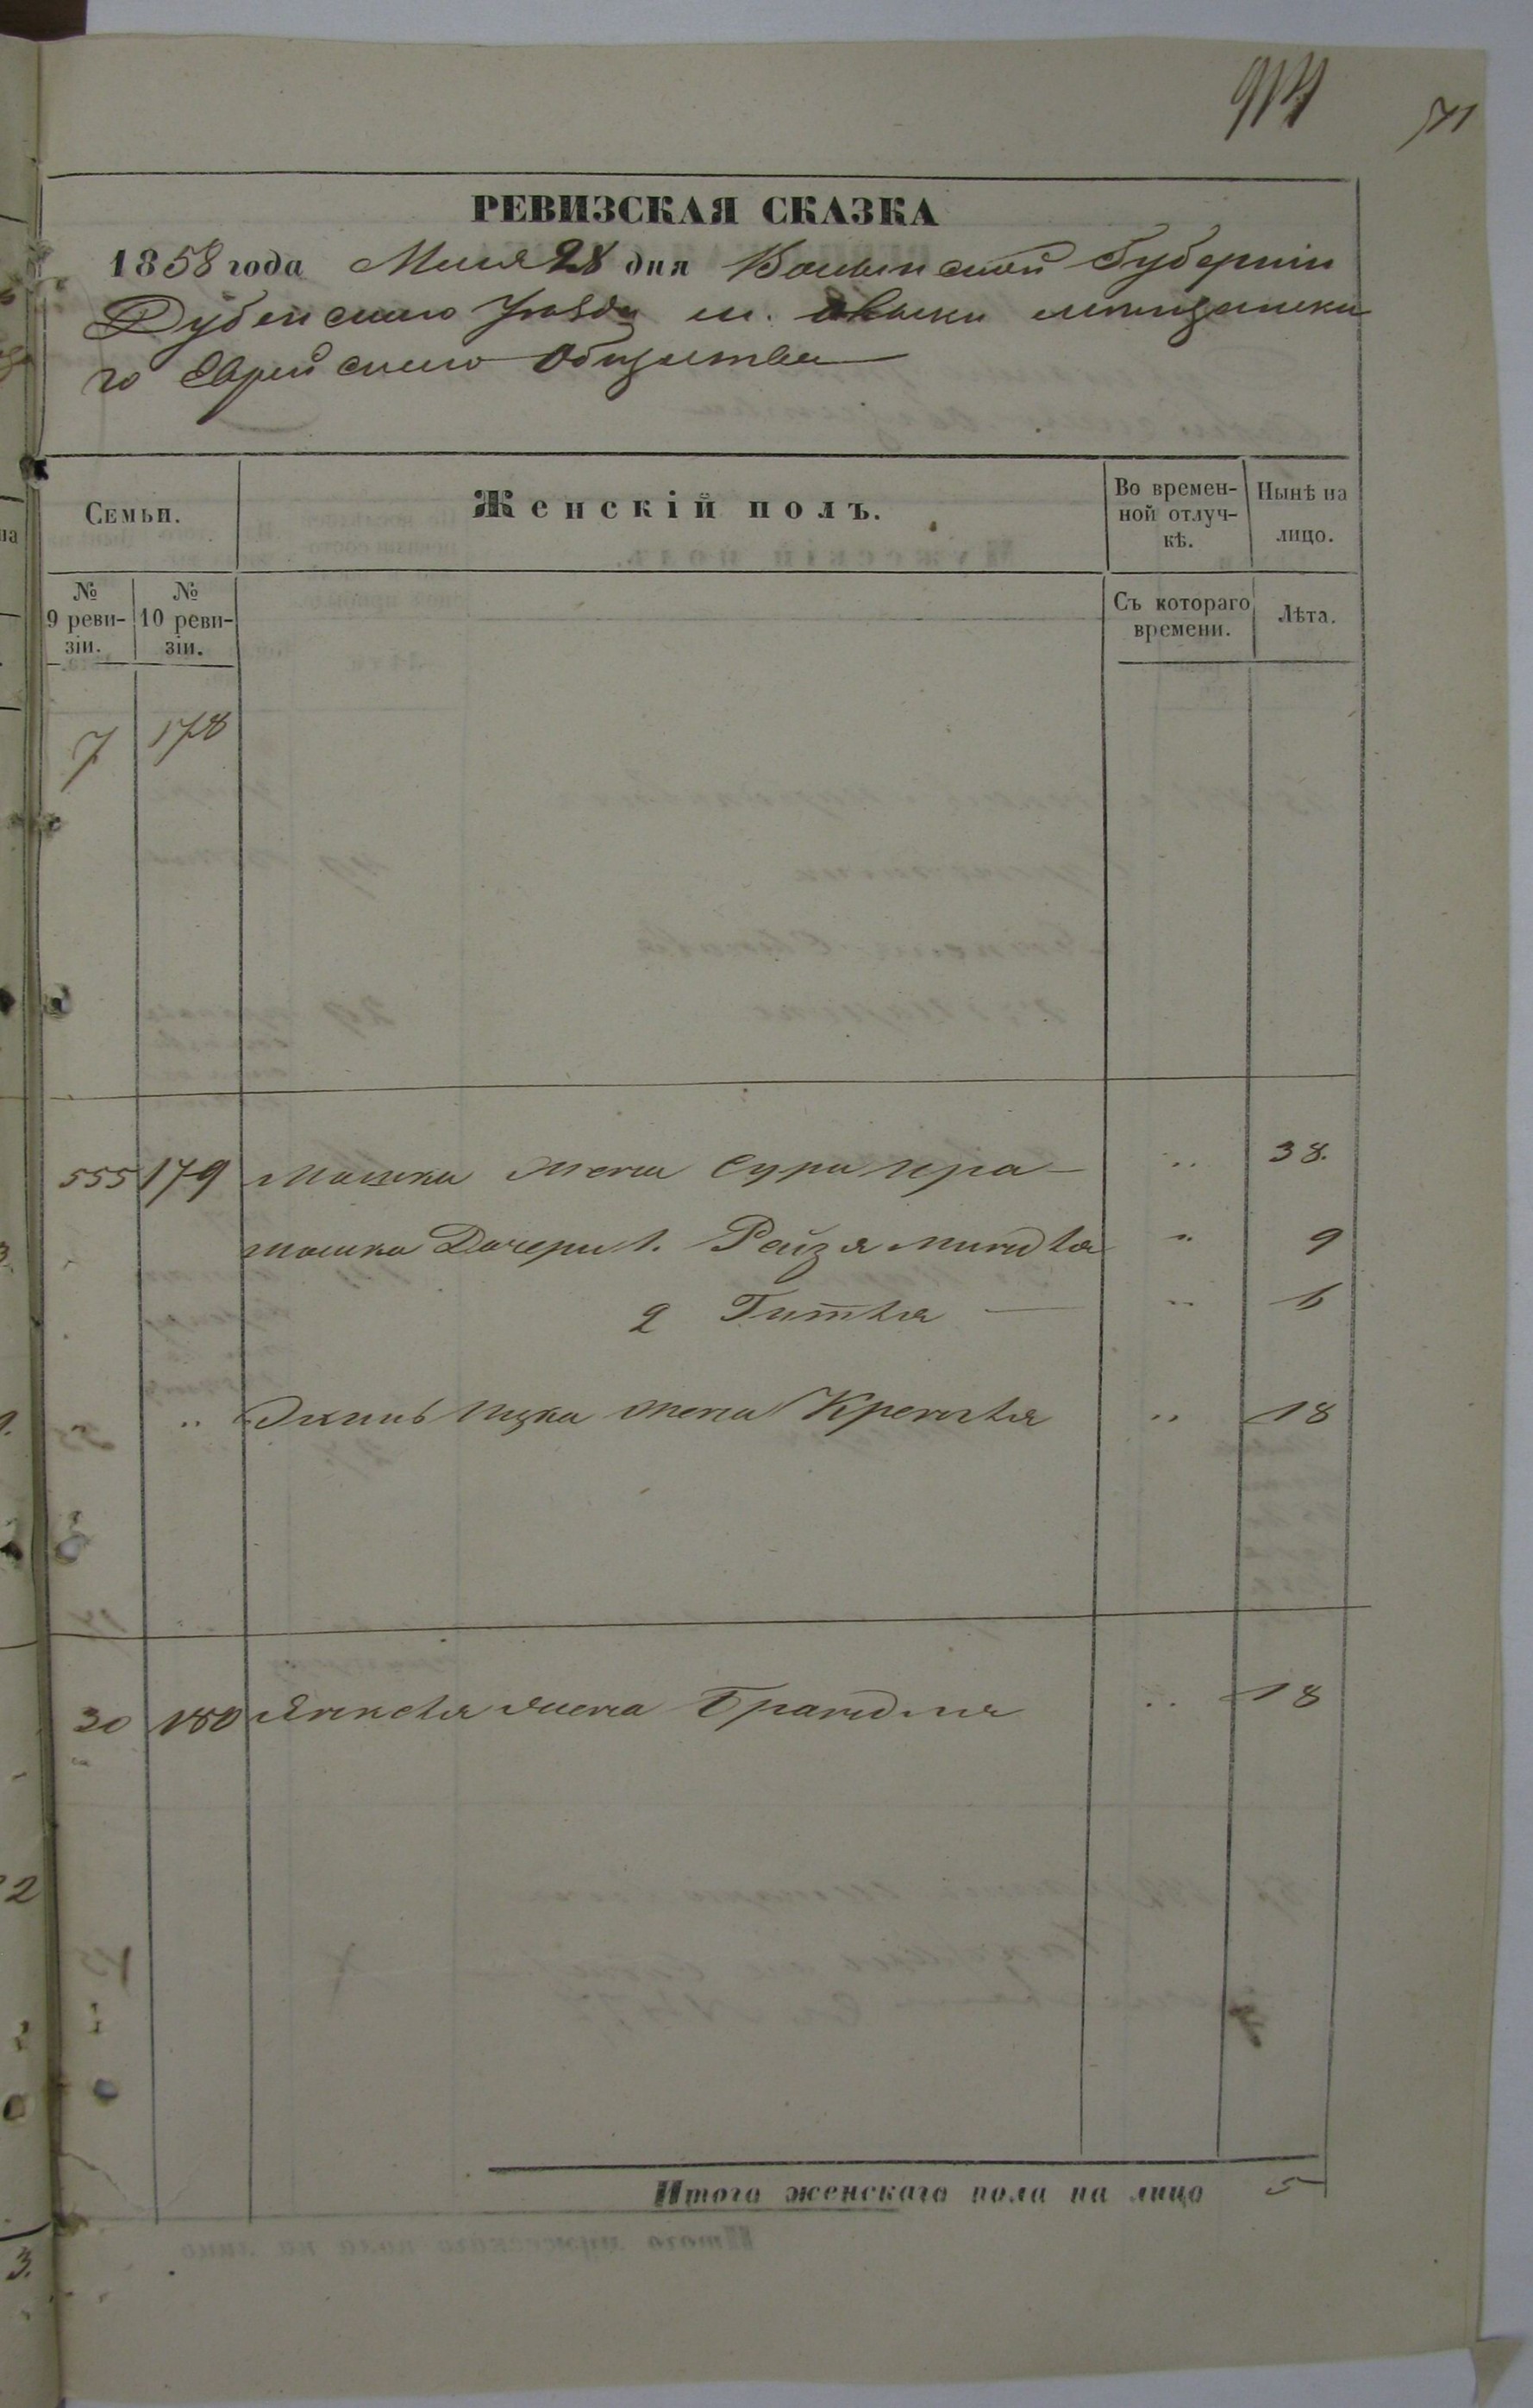 71
РЕВИЗСКАЯ СКАЗКА
1858 года Мая 28 дня Волынской Губерніи
Дубенскаго Уѣзда м. Олыки мѣщанска
го Еврейскаго Общества
Семьи.
Женскій полъ.
Во времен-
ной отлуч-
кѣ.
Нынѣ на
лицо.
№
9 реви-
зіи.
№
10 реви-
зіи.
Съ котораго
времени.
Лѣта.
7 178
555 179 Мошка жена Сура „ 38.
Мошка Дочери 1. Рейзя Миндля „ 9
2 Гитля — „ 6
„ жена Крейнля „ 18
30 180 Янкеля жена Брандля „ 18
Итого женскаго пола на лицо 5